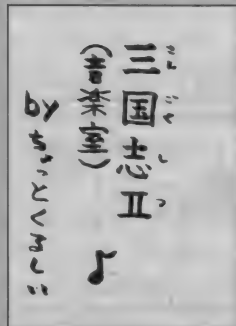 三国志Ⅱ
さん ごく し つ
(音楽室)
♪
by ちょっとくるしい